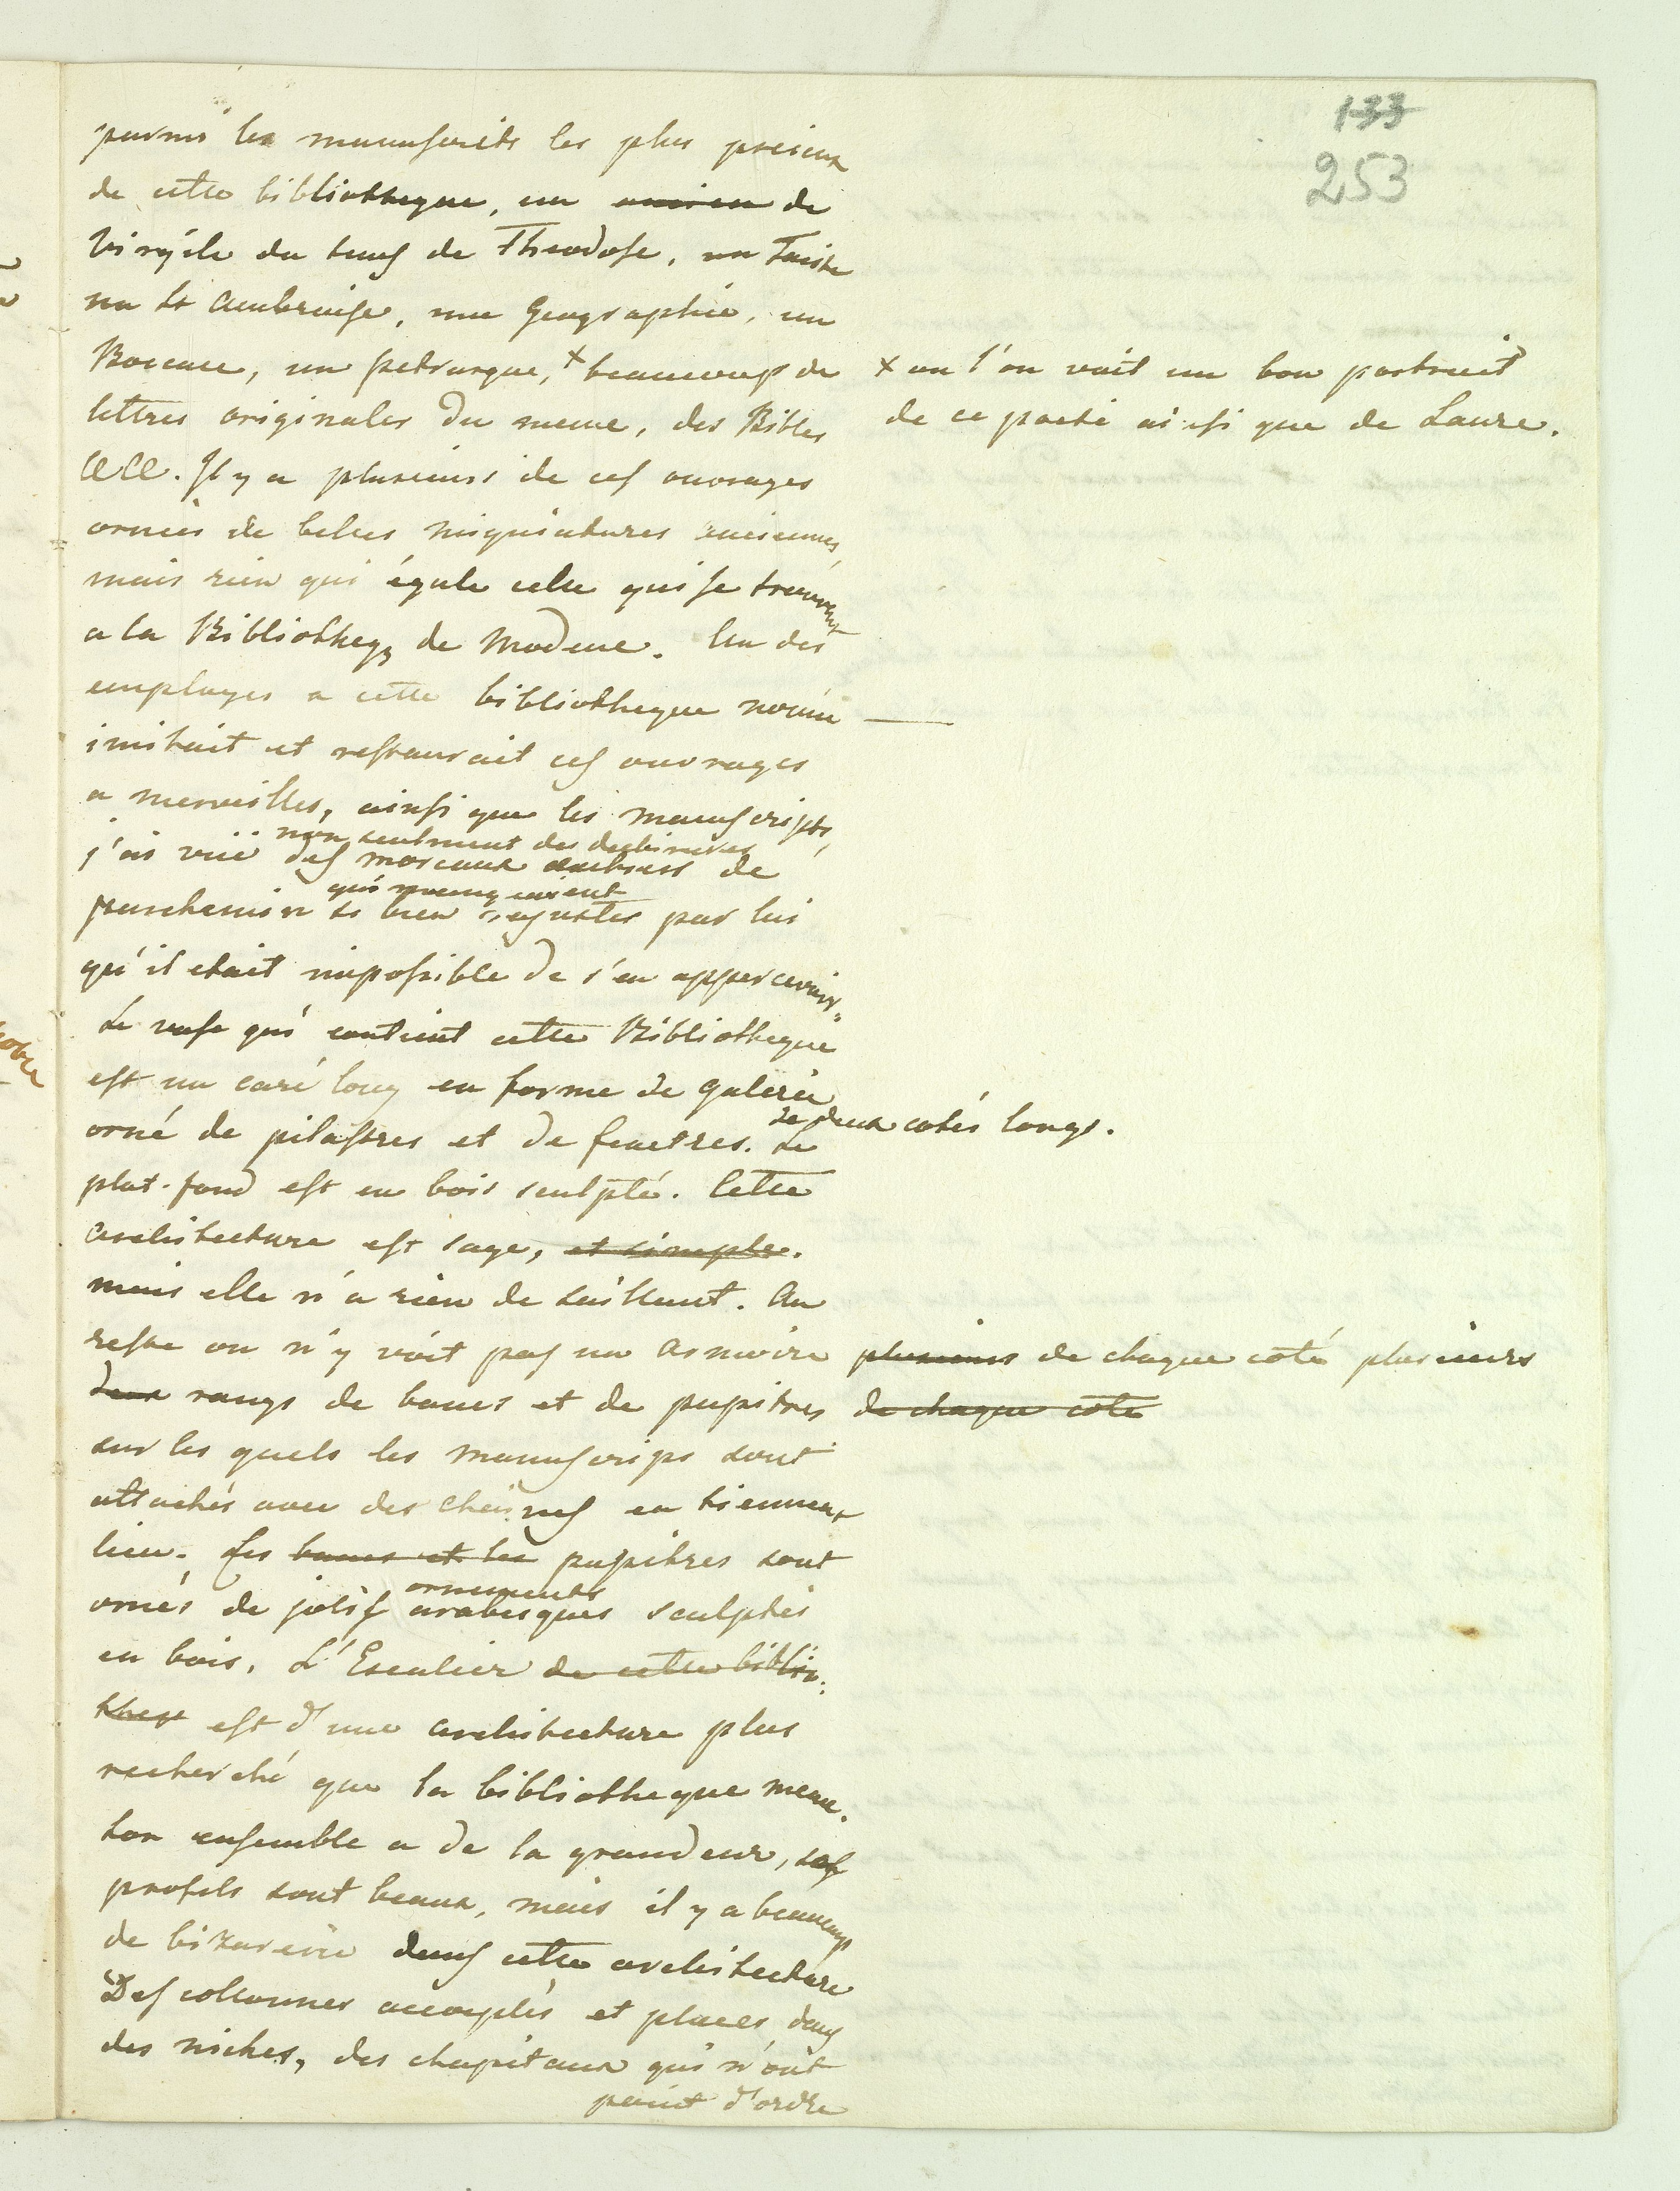 133
253
parmi les manuscrits les plus precieux
de cette bibliotheque, un ancien de
Virgile du tems de Theodose, un Tacite
un St Ambroise, une Geographie, un
Boccace, un petrarque, + beaucoup de
+ ou l'on voit un bon portrait
lettres originales du meme, des Bibles
de ce poete ainsi que de Laure.
&c &c. Il y a plusieurs de ces ouvrages
ornées de belles migniatures anciennes,
mais rien qui égale celle qui se trouvent
a la Bibliotheqe de Modene. Un des
employes a cette bibliotheque nomé ——
imitait et restaurait ces ouvrages
a merveilles, ainsi que les manuscripts,
non seulment des dechirures
j'ai vüe des morceaux de
qui manquaient
parchemin si bien ajustés par lui
qu'il etait impossible de s'en appercevoir.
Le vase qui contient cette Bibliotheque
est un caré long en forme de galerie
de deux cotés longs.
orné de pilastres et de fenetres. Le
plat-fond est en bois sculpté. Cette
architecture est sage, et simple.
mais elle n'a rien de saillant. Au
reste on n'y voit pas un armoire plusieurs de chaque coté plusieurs
deux rangs de bancs et de pupitres de chaque coté
sur les quels les manuscrips sont
attachés avec des chaines en tiennent
lieu. Les bancs et les pupitres sont
ornements
ornés de jolis arabesques sculptés
en bois. L'Escalier de cette biblio:
theqe est d'une architecture plus
recherché que la bibliotheque meme.
son ensemble a de la grandeur, ses
profils sont beaux, mais il y a beaucoup
de bizarerie dans cette architecture
Des collonnes accouplés et places dans
des niches, des chapitaux qui n'ont
point d'ordre